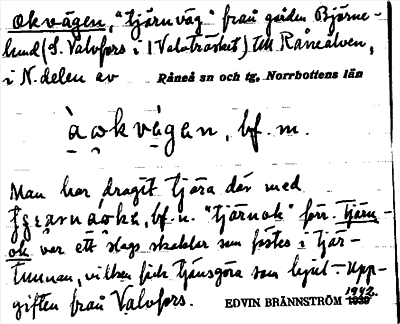 Okvägen, "tjärnväg" från gården Björne-
lund (S. Valvfors i Valvträsket) till Råneälven,
i N. delen av Råneå sn och tg, Norrbottens län
àokvágen, bf. m.
Man har dragit tjära där med
bf. n. "tjärnok" förr. Tjärn-
ok var ett slags skaklar som fästes i tjär-
tunnan, vilken fick tjänstgöra som hjul. — Upp-
giften från Valvfors. EDVIN BRÄNNSTRÖM 1942.